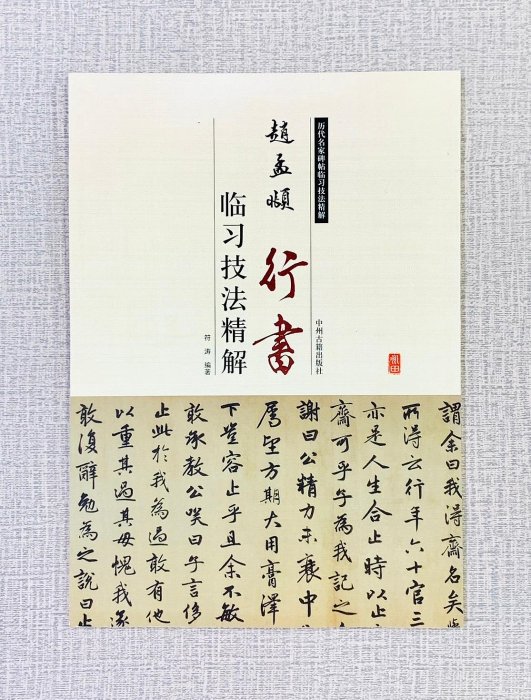 历代名家碑帖临习技法精解
中州古籍出版社
趙孟頫
行書
临习技法精解
符涛 编著
謂余曰我得齋名矣
所得云行年六十官三
亦是人生合止時以止
齋可乎子為我記之
謝曰公精力未衰中
属望方期大用膏澤
下豈容止乎且余不敏
敢承教公哭曰子言侈
止此於我為過敢有他
以重其過其毋愧我 
敢復辭勉為之說曰止